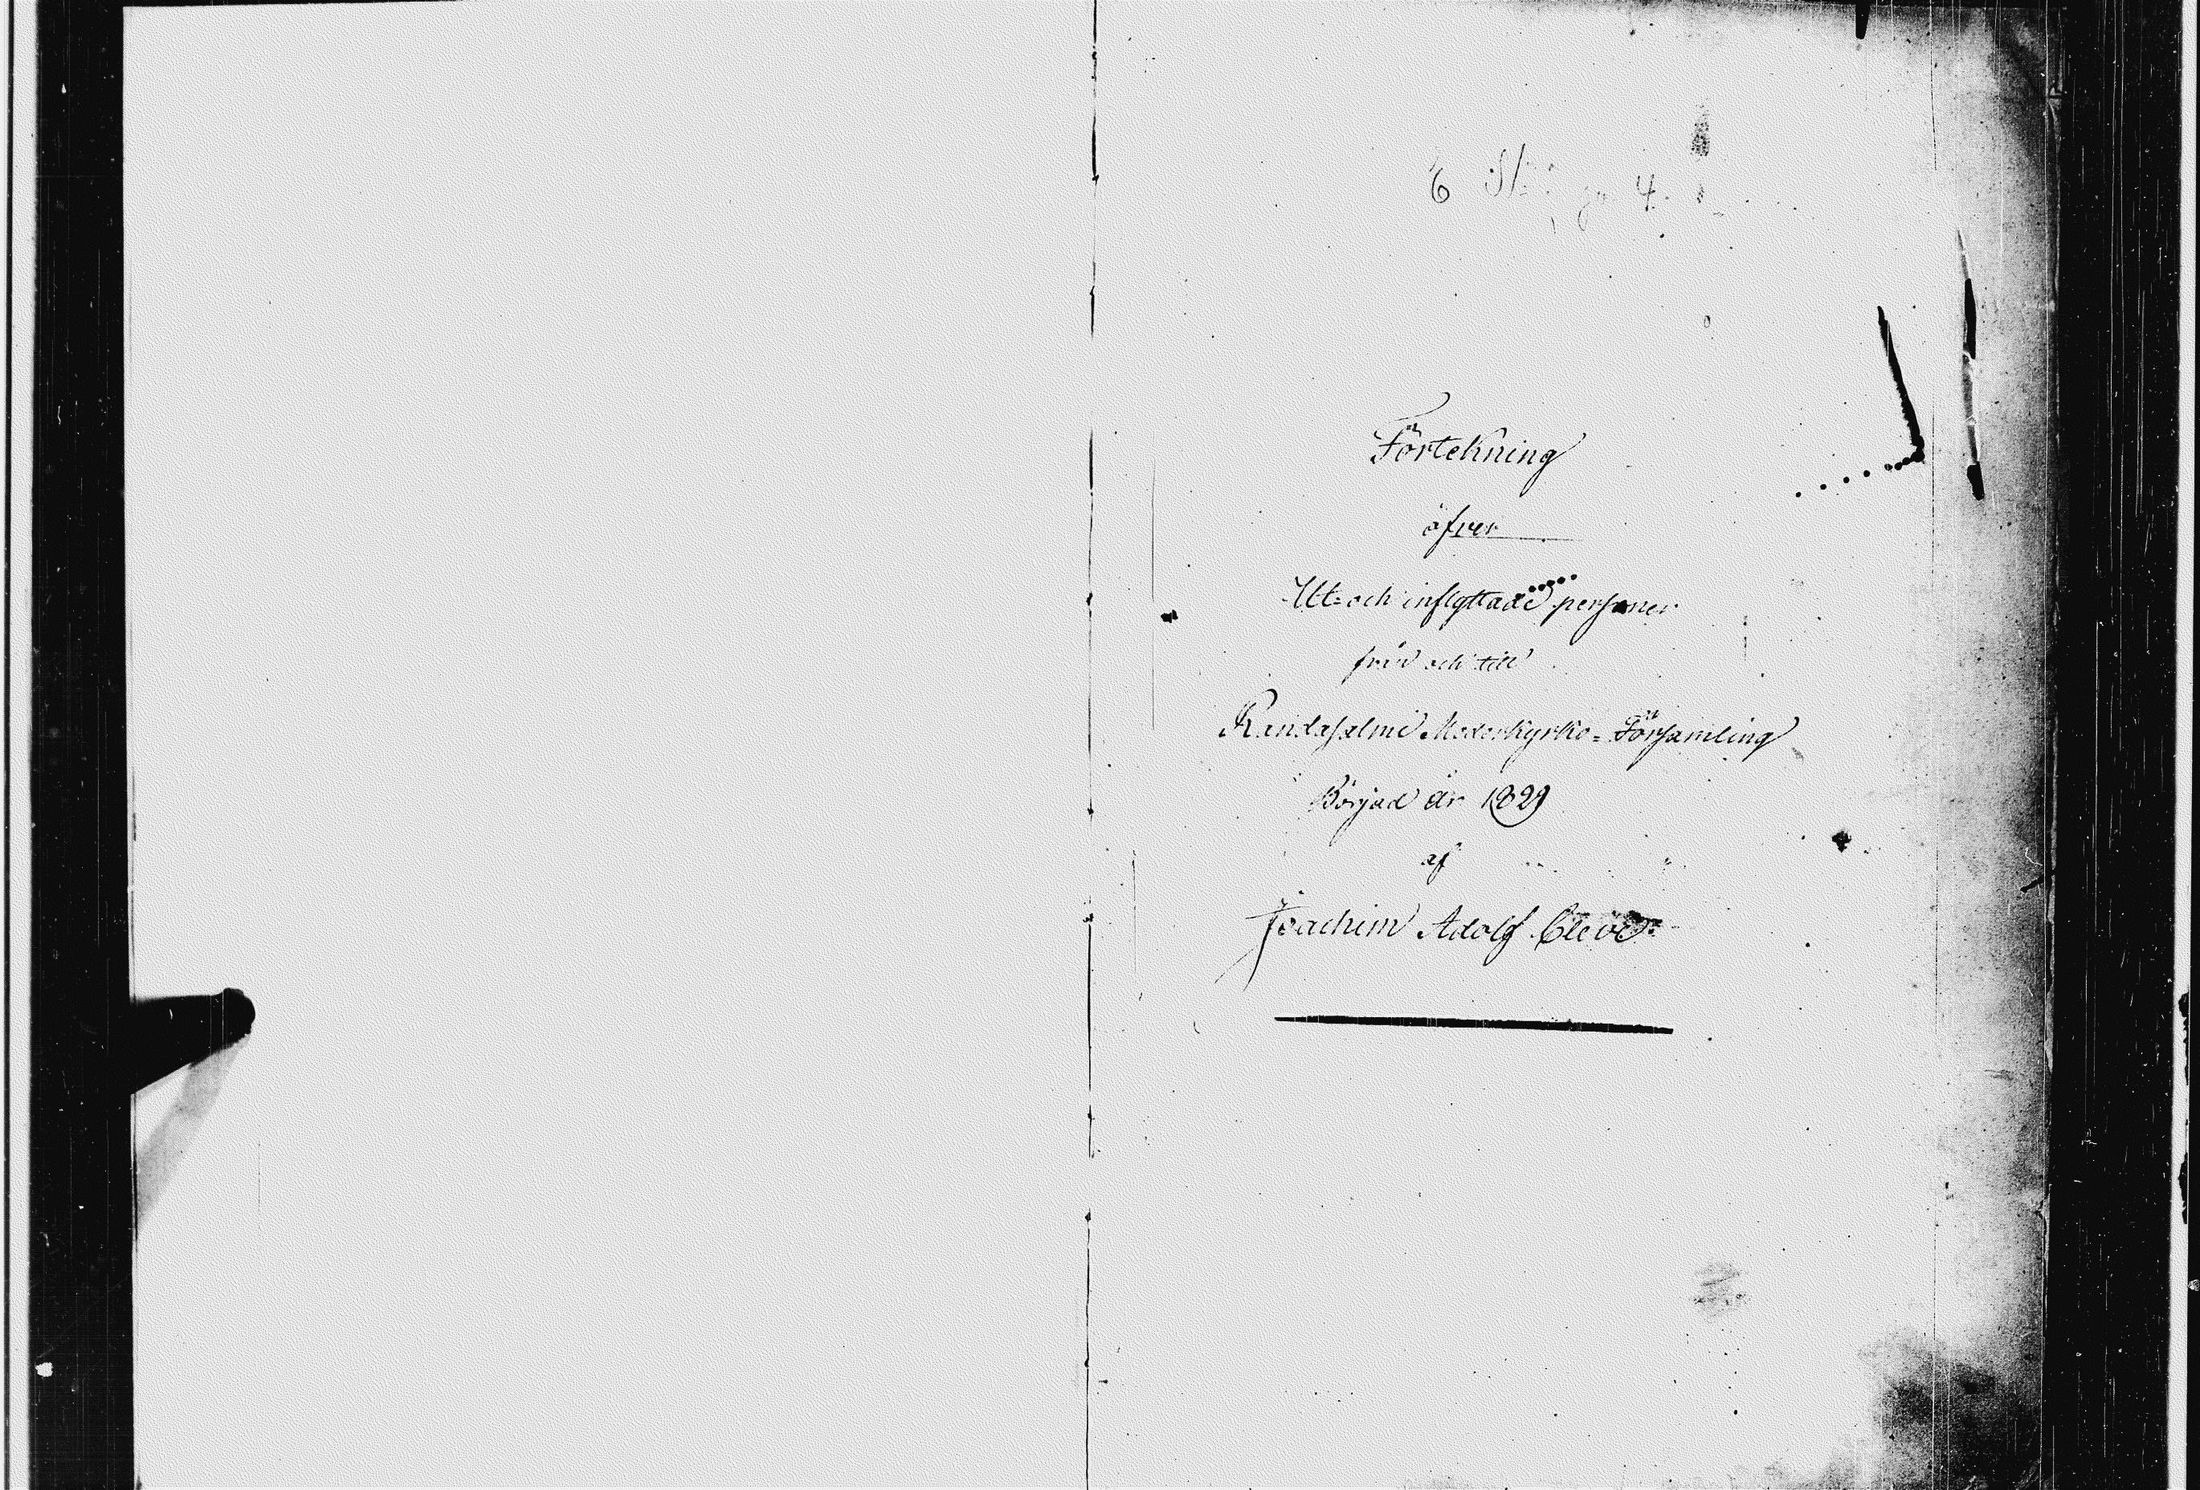 Förtekning
öfver
Ut- och inflyttade personer
från och till
Randasalmi Moderkyrko-Församling
Börjad år 1829
af
Joachim Adolf Cleve